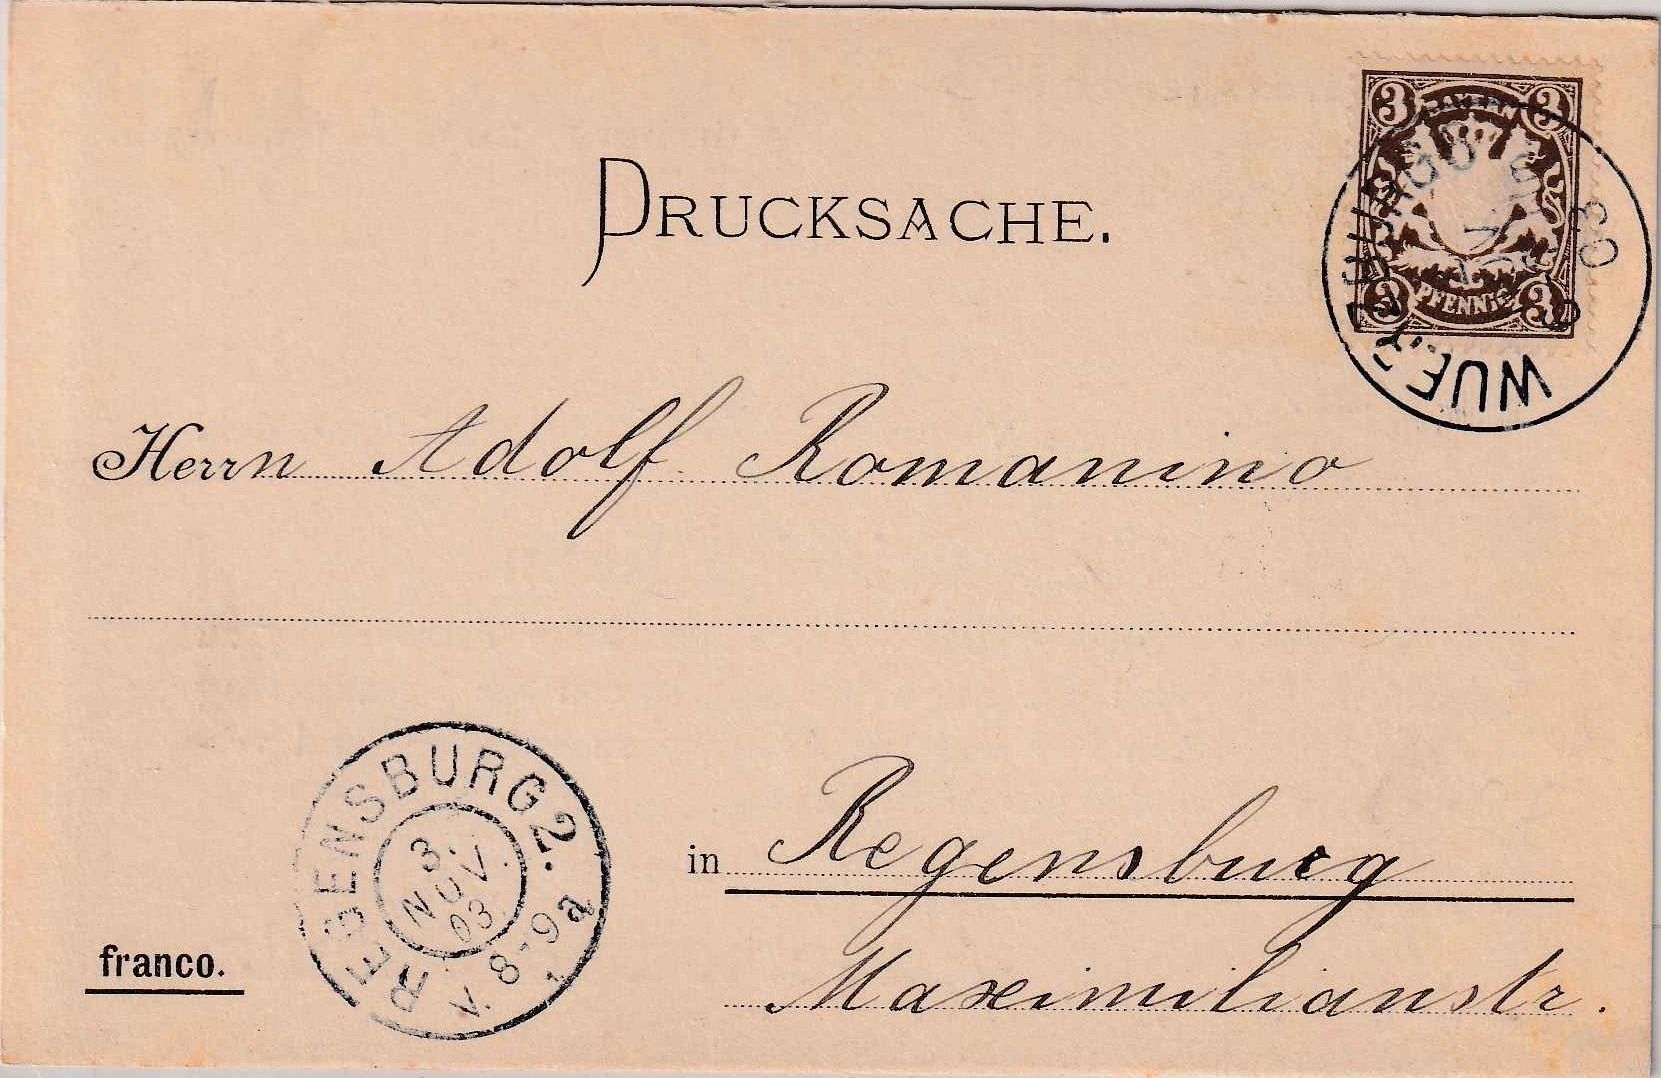 3 BAYERN 3
3 PFENNIG 3
WUERZBURG
03
DRUCKSACHE.
Herrn Adolf Romanino
REGENSBURG 2.
3. NOV. 03
V. 8-9 a
in Regensburg
franco.
Maximilianstr.